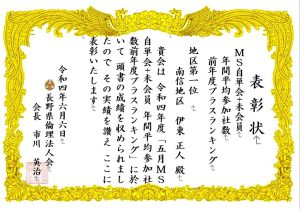 表彰状
MS自単会+本会員
年間平均参加社数
前年度プラスランキング
地区第一位
南信地区 伊東 正人 殿
貴会は 令和四年度「五月MS
自単会+本会員 年間平均参加社
数前年度プラスランキング」に於
いて 頭書の成績を収められまし
たので その実績を讃え ここに
表彰いたします
令和四年六月六日
長野県倫理法人会
会長 市川 英治